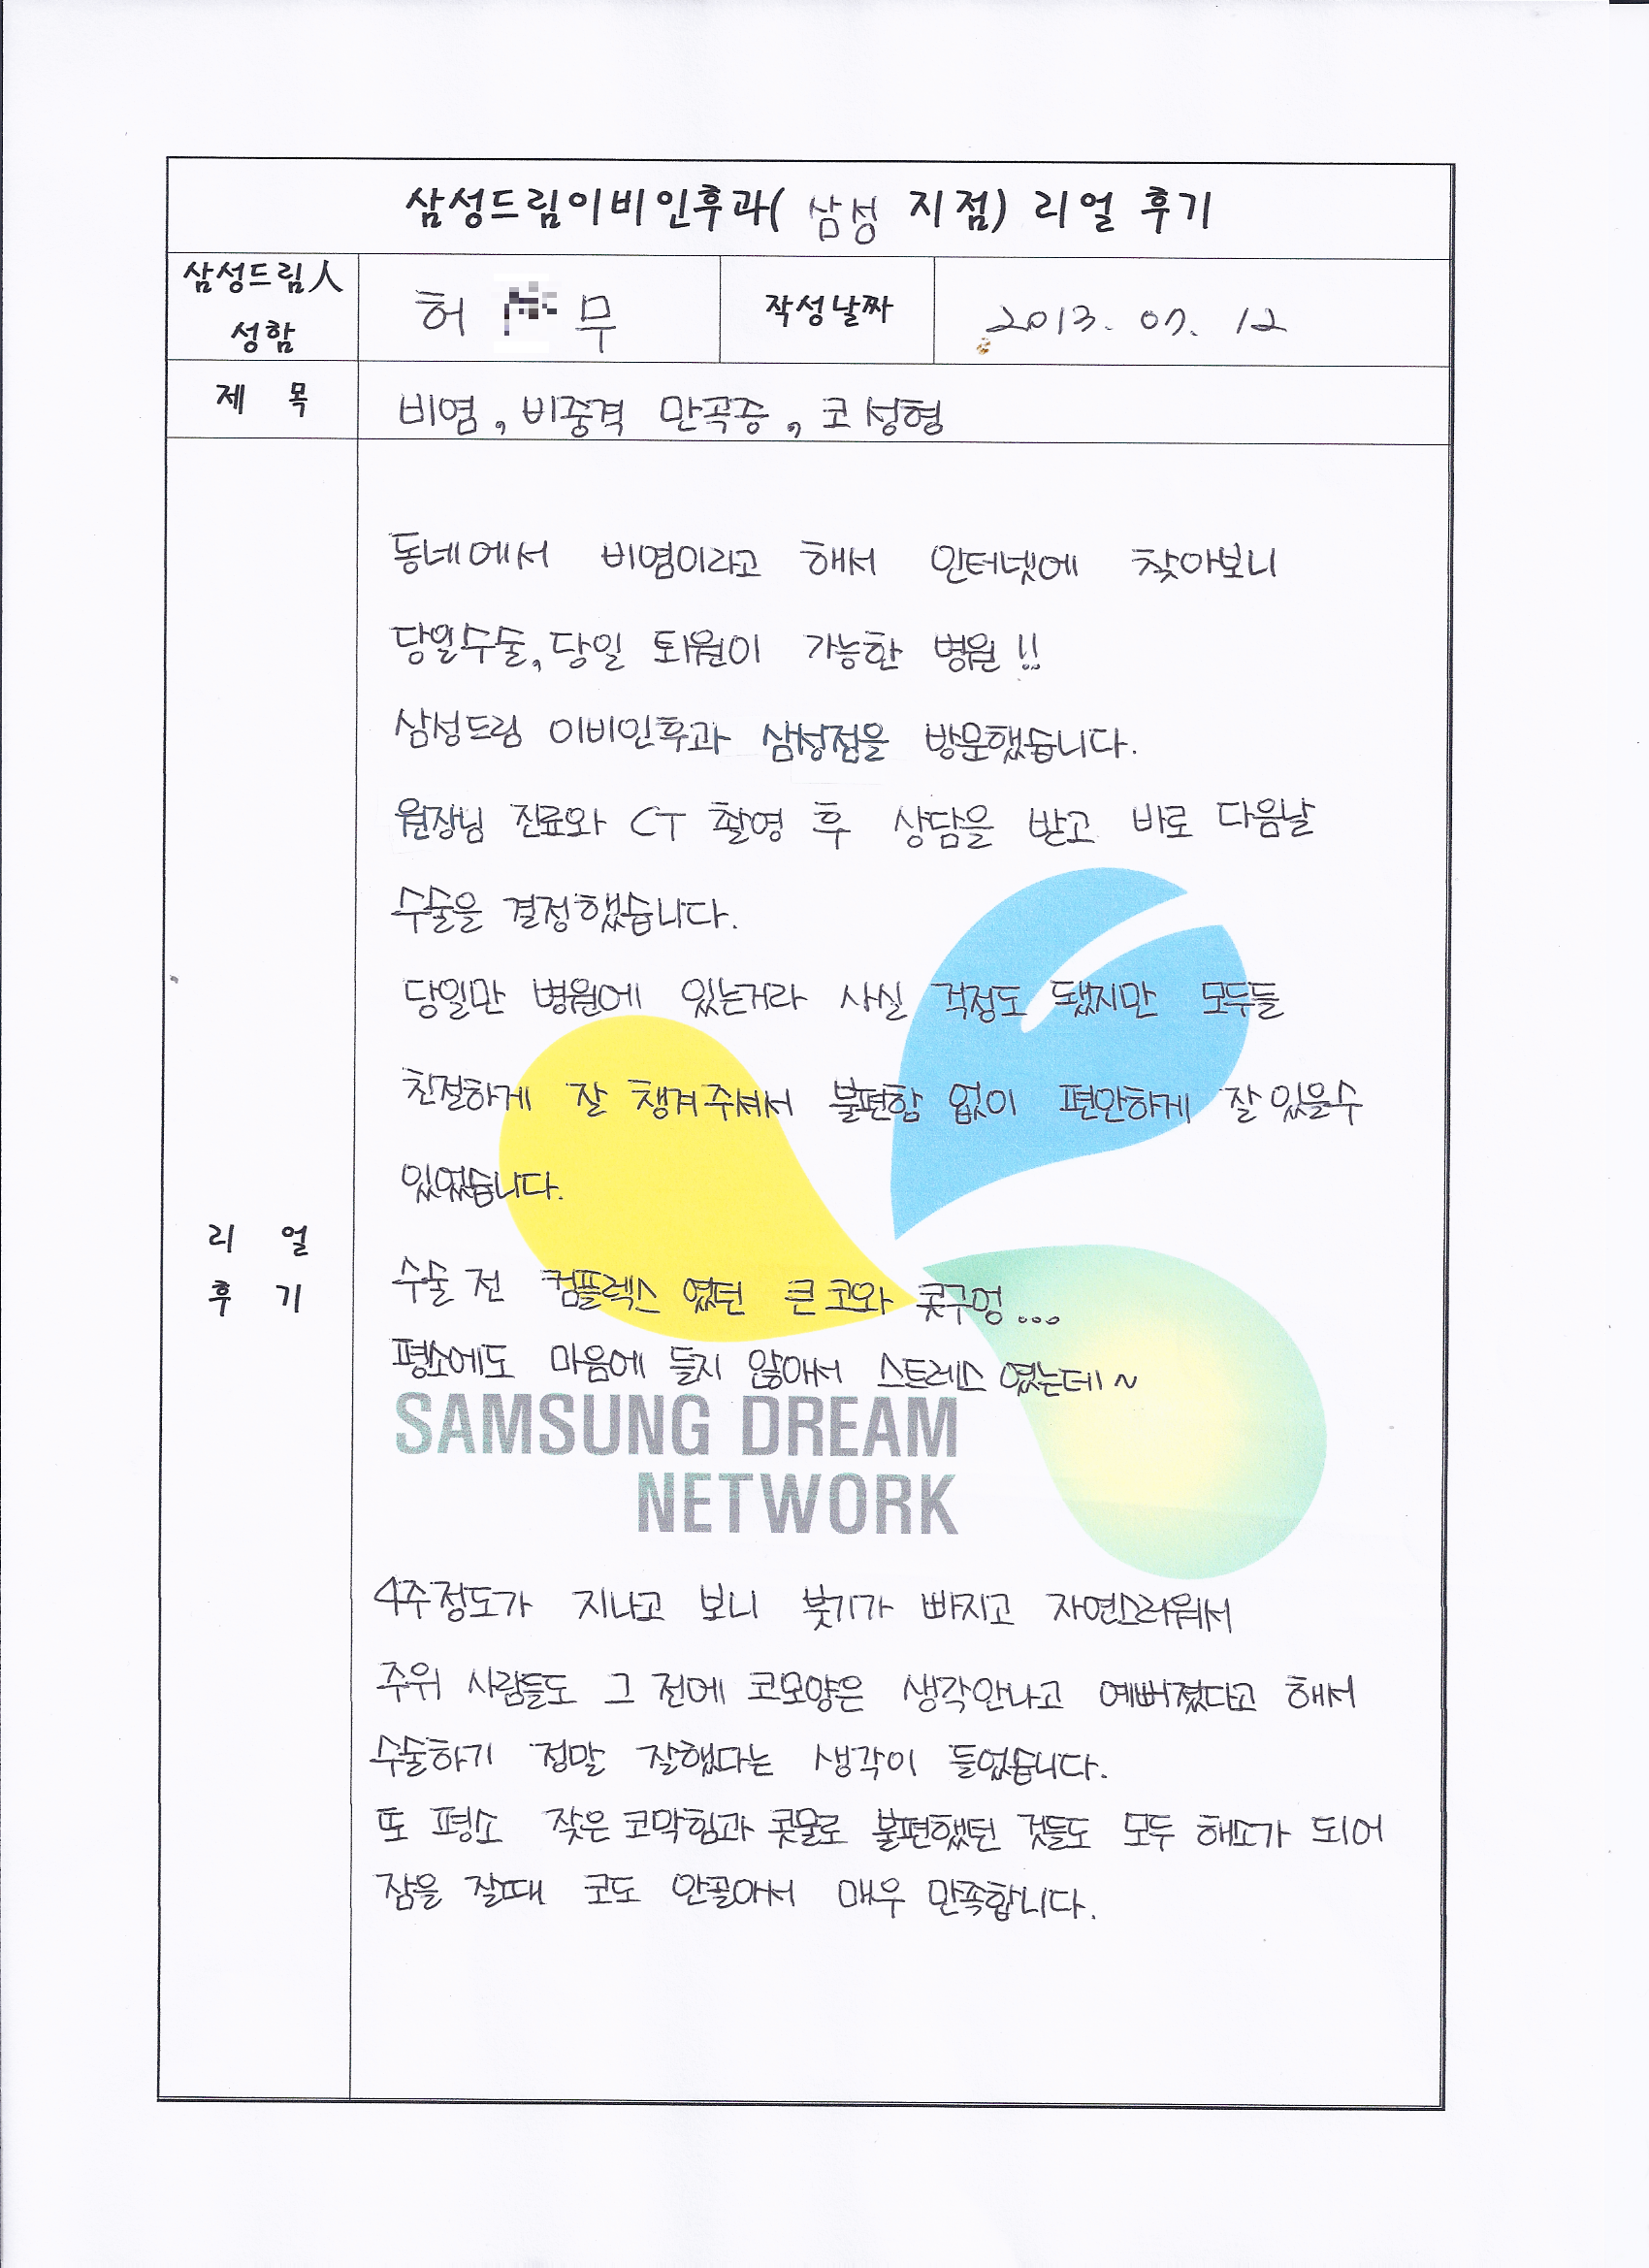 삼성드림이비인후과( 삼성 지점) 리얼 후기
삼성드림人
성함
허 무
작성날짜
2013. 07. 12
제 목
비염, 비중격 만곡증, 코 성형
동네에서 비염이라고 해서 인터넷에 찾아보니
당일수술, 당일 퇴원이 가능한 병원!!
삼성드림 이비인후과 삼성점을 방문했습니다.
원장님 진료와 CT 촬영 후 상담을 받고 바로 다음날
수술을 결정했습니다.
당일만 병원에 있는거라 사실 걱정도 됐지만 모두들
친절하게 잘 챙겨주셔서 불편함 없이 편안하게 잘 있을수
있었습니다.
리 얼
후 기
수술 전 컴플렉스 였던 큰 코와 콧구멍...
평소에도 마음에 들지 않아서 스트레스 였는데~
SAMSUNG DREAM
NETWORK
4주정도가 지나고 보니 붓기가 빠지고 자연스러워서
주위 사람들도 그 전에 코모양은 생각안나고 예뻐졌다고 해서
수술하기 정말 잘했다는 생각이 들었습니다.
또 평소 잦은 코막힘과 콧물로 불편했던 것들도 모두 해소가 되어
잠을 잘때 코도 안골아서 매우 만족합니다.